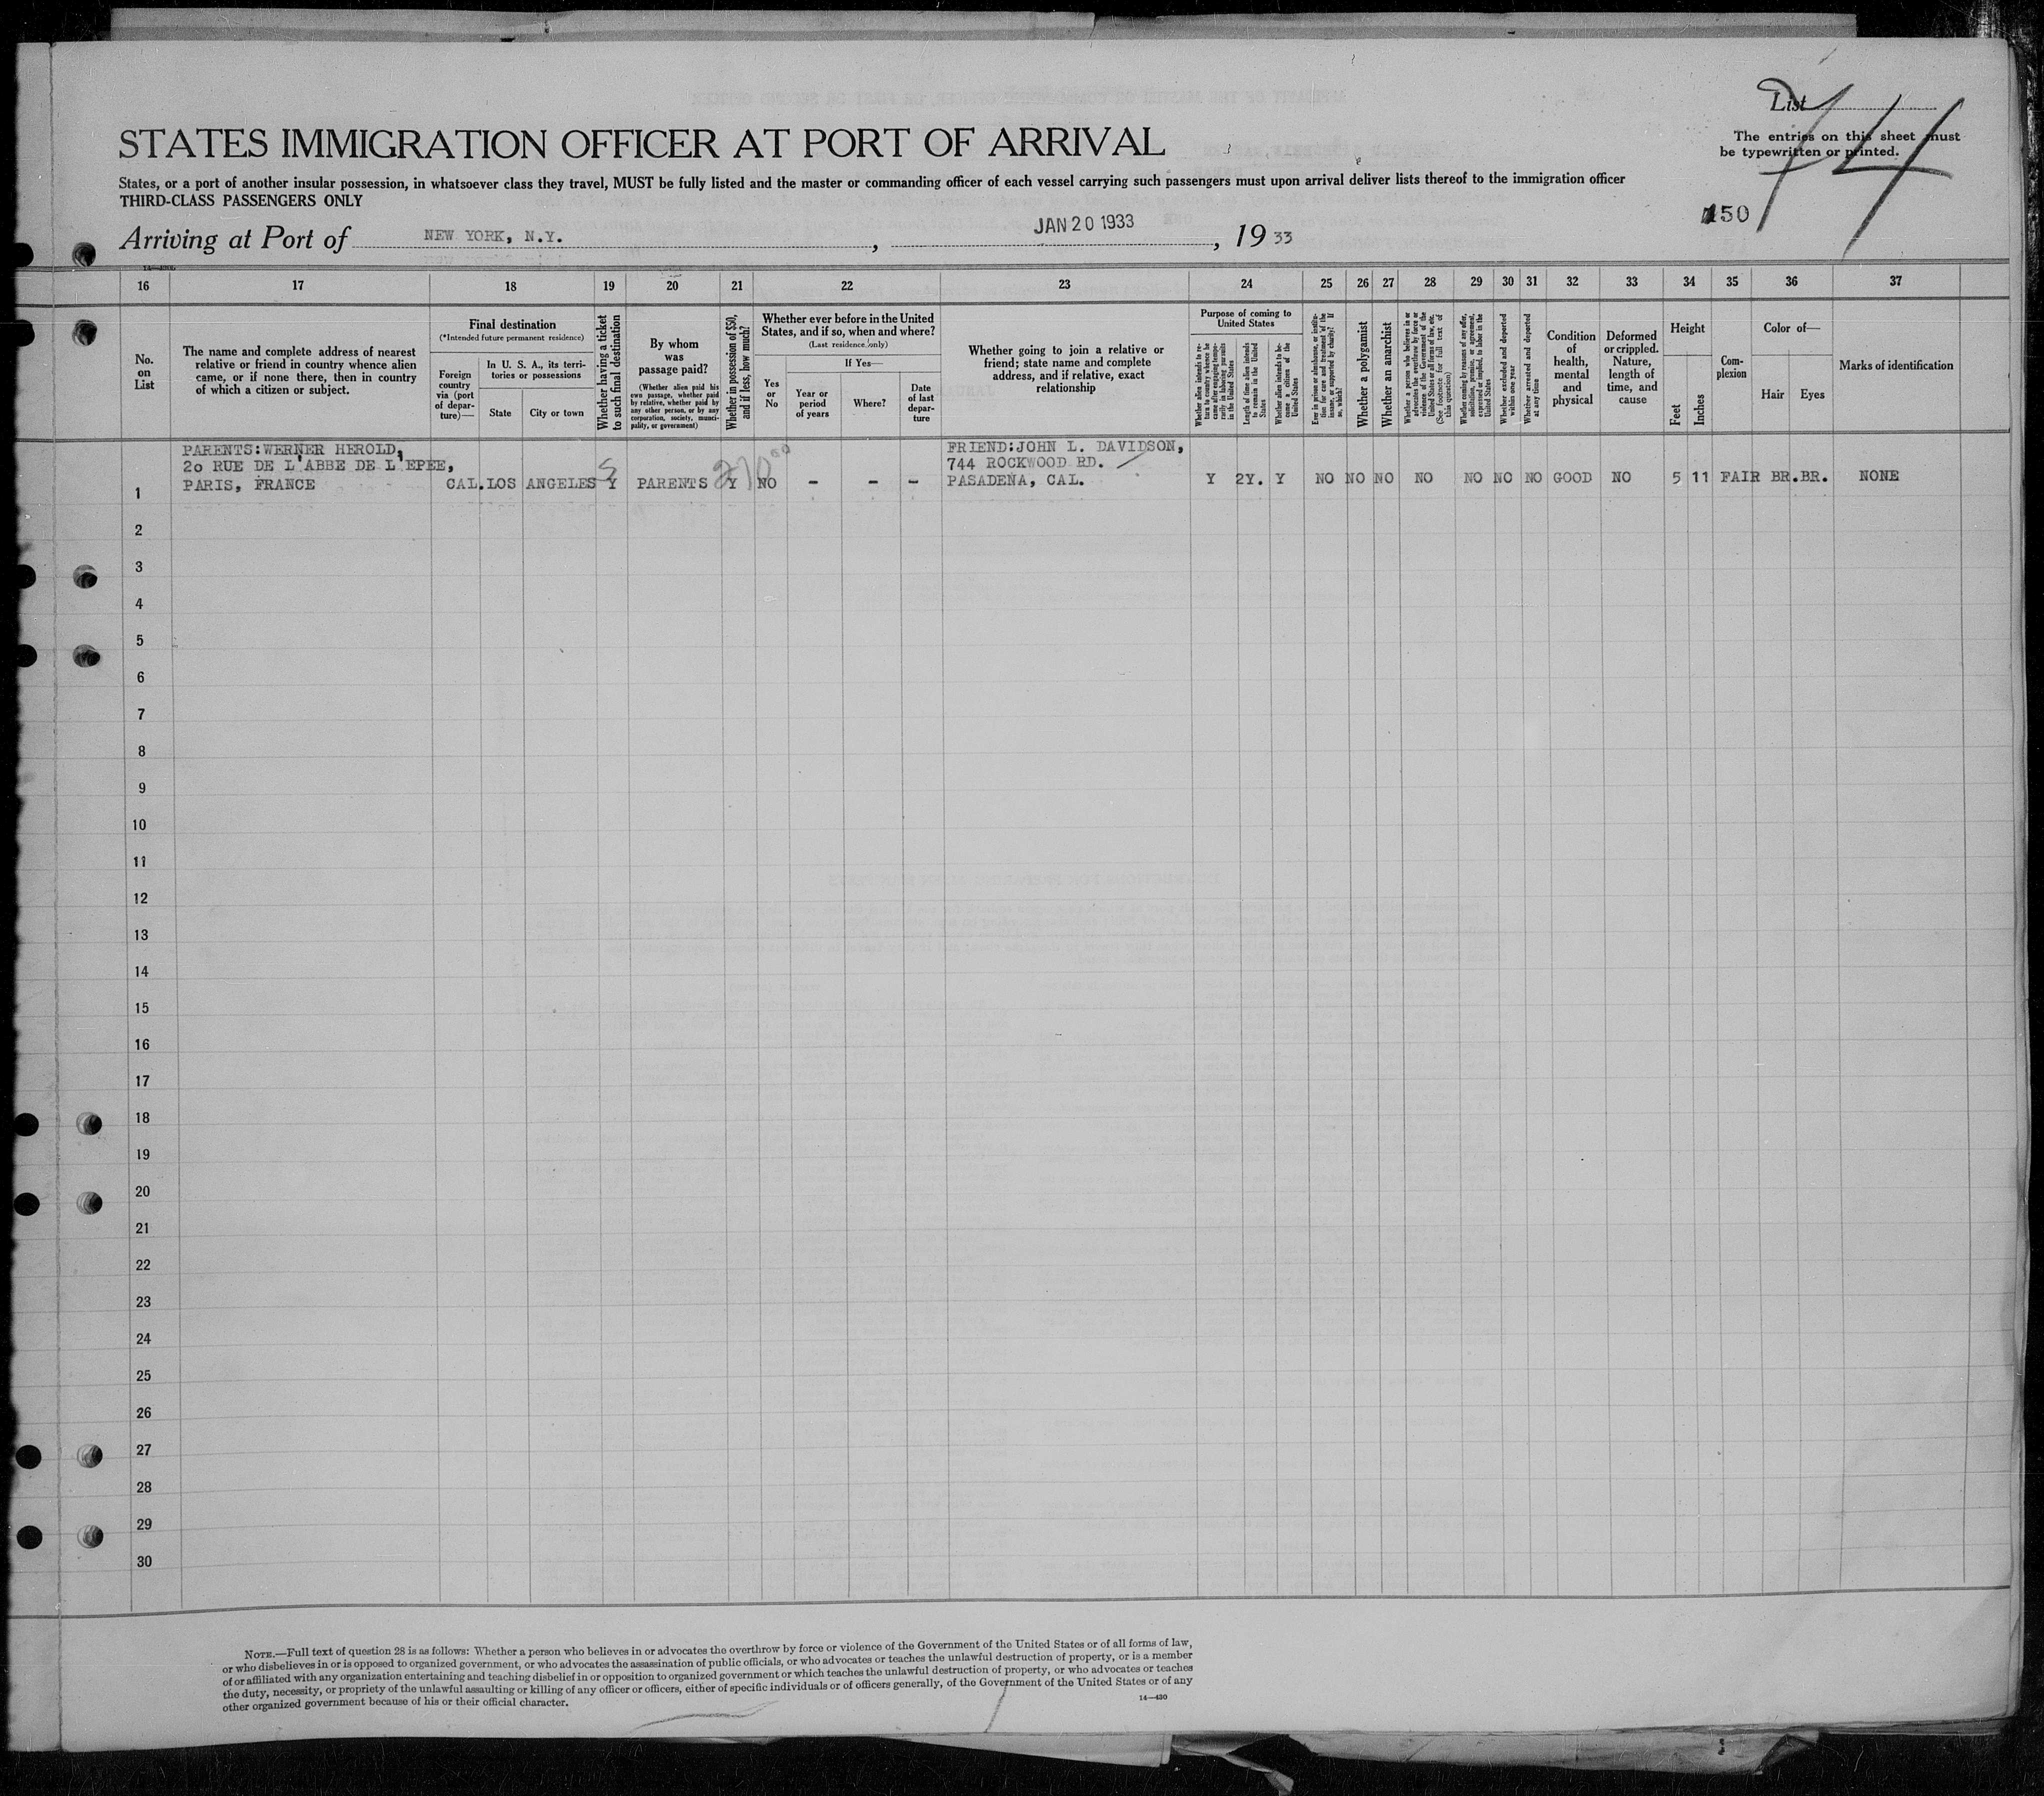 List 74
The entries on this sheet must
be typewritten or printed.
STATES IMMIGRATION OFFICER AT PORT OF ARRIVAL
States, or a port of another insular possession, in whatsoever class they travel, MUST be fully listed and the master or commanding officer of each vessel carrying such passengers must upon arrival deliver lists thereof to the immigration officer
THIRD-CLASS PASSENGERS ONLY
150
Arriving at Port of NEW YORK, N.Y. , JAN 20 1933 , 19 33
16 17 18 19 20 21 22 23 24 25 26 27 28 29 30 31 32 33 34 35 36 37
No. on List
The name and complete address of nearest
relative or friend in country whence alien
came, or if none there, then in country
of which a citizen or subject.
Final destination
(*Intended future permanent residence)
Foreign
country
via (port
of depar-
ture)—
In U. S. A., its terri-
tories or possessions
State
City or town
Whether having a ticket
to such final destination
By whom
was
passage paid?
(Whether alien paid his
own passage, whether paid
by relative, whether paid by
any other person, or by any
corporation, society, munici-
pality, or government)
Whether in possession of $50,
and if less, how much?
Whether ever before in the United
States, and if so, when and where?
(Last residence only)
Yes
or
No
If Yes—
Year or
period
of years
Where?
Date
of last
depar-
ture
Whether going to join a relative or
friend; state name and complete
address, and if relative, exact
relationship
Purpose of coming to
United States
Whether alien intends to re-
turn to country whence he
came after engaging tempo-
rarily in laboring pursuits
in the United States
Length of time alien intends
to remain in the United
States
Whether alien intends to be-
come a citizen of the
United States
Ever in prison or almshouse, or institu-
tion for care and treatment of the
insane, or supported by charity? If
so, which?
Whether a polygamist
Whether an anarchist
Whether a person who believes in or
advocates the overthrow by force or
violence of the Government of the
United States or all forms of law, etc.
(See footnote for full text of
this question)
Whether coming by reasons of any offer,
solicitation, promise, or agreement,
expressed or implied, to labor in the
United States
Whether excluded and deported
within one year
Whether arrested and deported
at any time
Condition
of
health,
mental
and
physical
Deformed
or crippled.
Nature,
length of
time, and
cause
Height
Feet
Inches
Com-
plexion
Color of—
Hair
Eyes
Marks of identification
PARENTS:WERNER HEROLD,
20 RUE DE L'ABBE DE L'EPEE,
PARIS, FRANCE
1 CAL. LOS ANGELES Y PARENTS Y NO - - -
FRIEND:JOHN L. DAVIDSON,
744 ROCKWOOD RD.
PASADENA, CAL.
Y 2Y. Y NO NO NO NO NO NO NO GOOD NO 5 11 FAIR BR. BR. NONE
2
3
4
5
6
7
8
9
10
11
12
13
14
15
16
17
18
19
20
21
22
23
24
25
26
27
28
29
30
NOTE.—Full text of question 28 is as follows: Whether a person who believes in or advocates the overthrow by force or violence of the Government of the United States or of all forms of law,
or who disbelieves in or is opposed to organized government, or who advocates the assassination of public officials, or who advocates or teaches the unlawful destruction of property, or is a member
of or affiliated with any organization entertaining and teaching disbelief in or opposition to organized government or which teaches the unlawful destruction of property, or who advocates or teaches
the duty, necessity, or propriety of the unlawful assaulting or killing of any officer or officers, either of specific individuals or of officers generally, of the Government of the United States or of any
other organized government because of his or their official character.
14—430